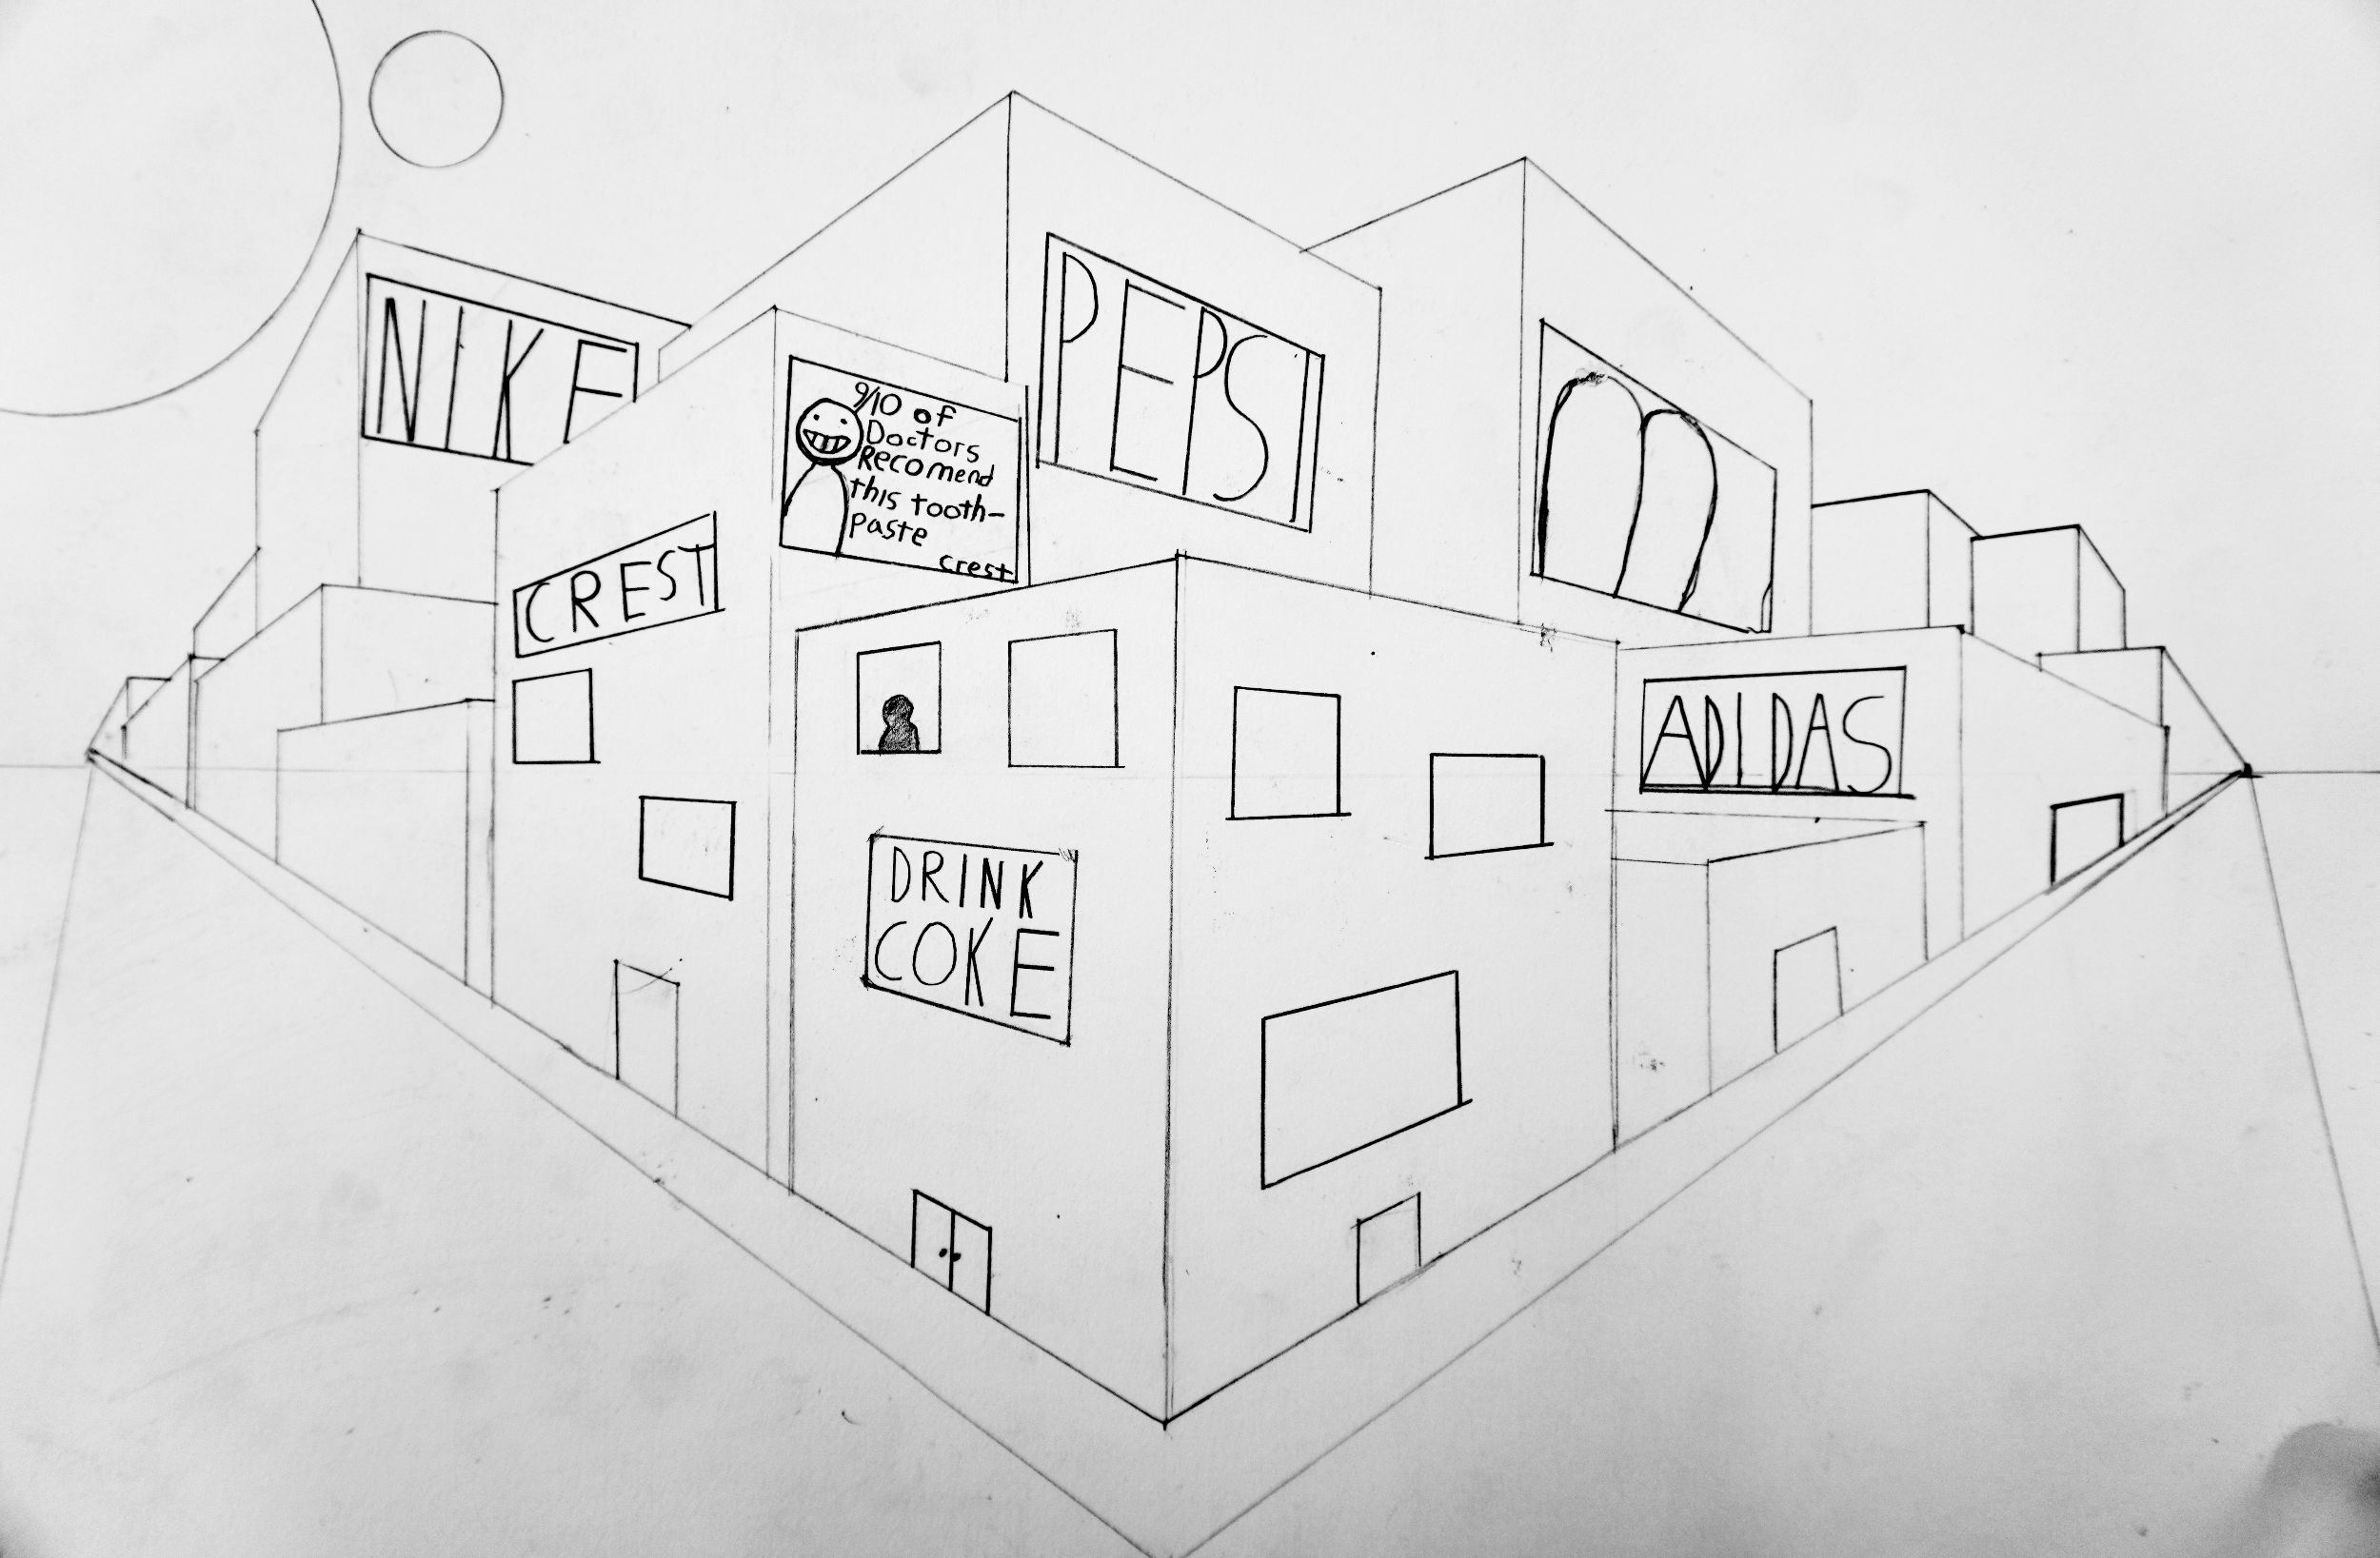 NIKE
PEPSI
9/10 of
Doctors
Recomend
this tooth-
paste
crest
CREST
ADIDAS
DRINK
COKE